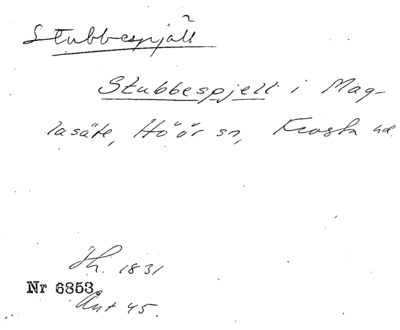 Stubbespjäll
Stubbespjell i Mag-
lasäte, Höör sn, Frosta hd
Jh. 1831
Nr 6853
Ant 45.